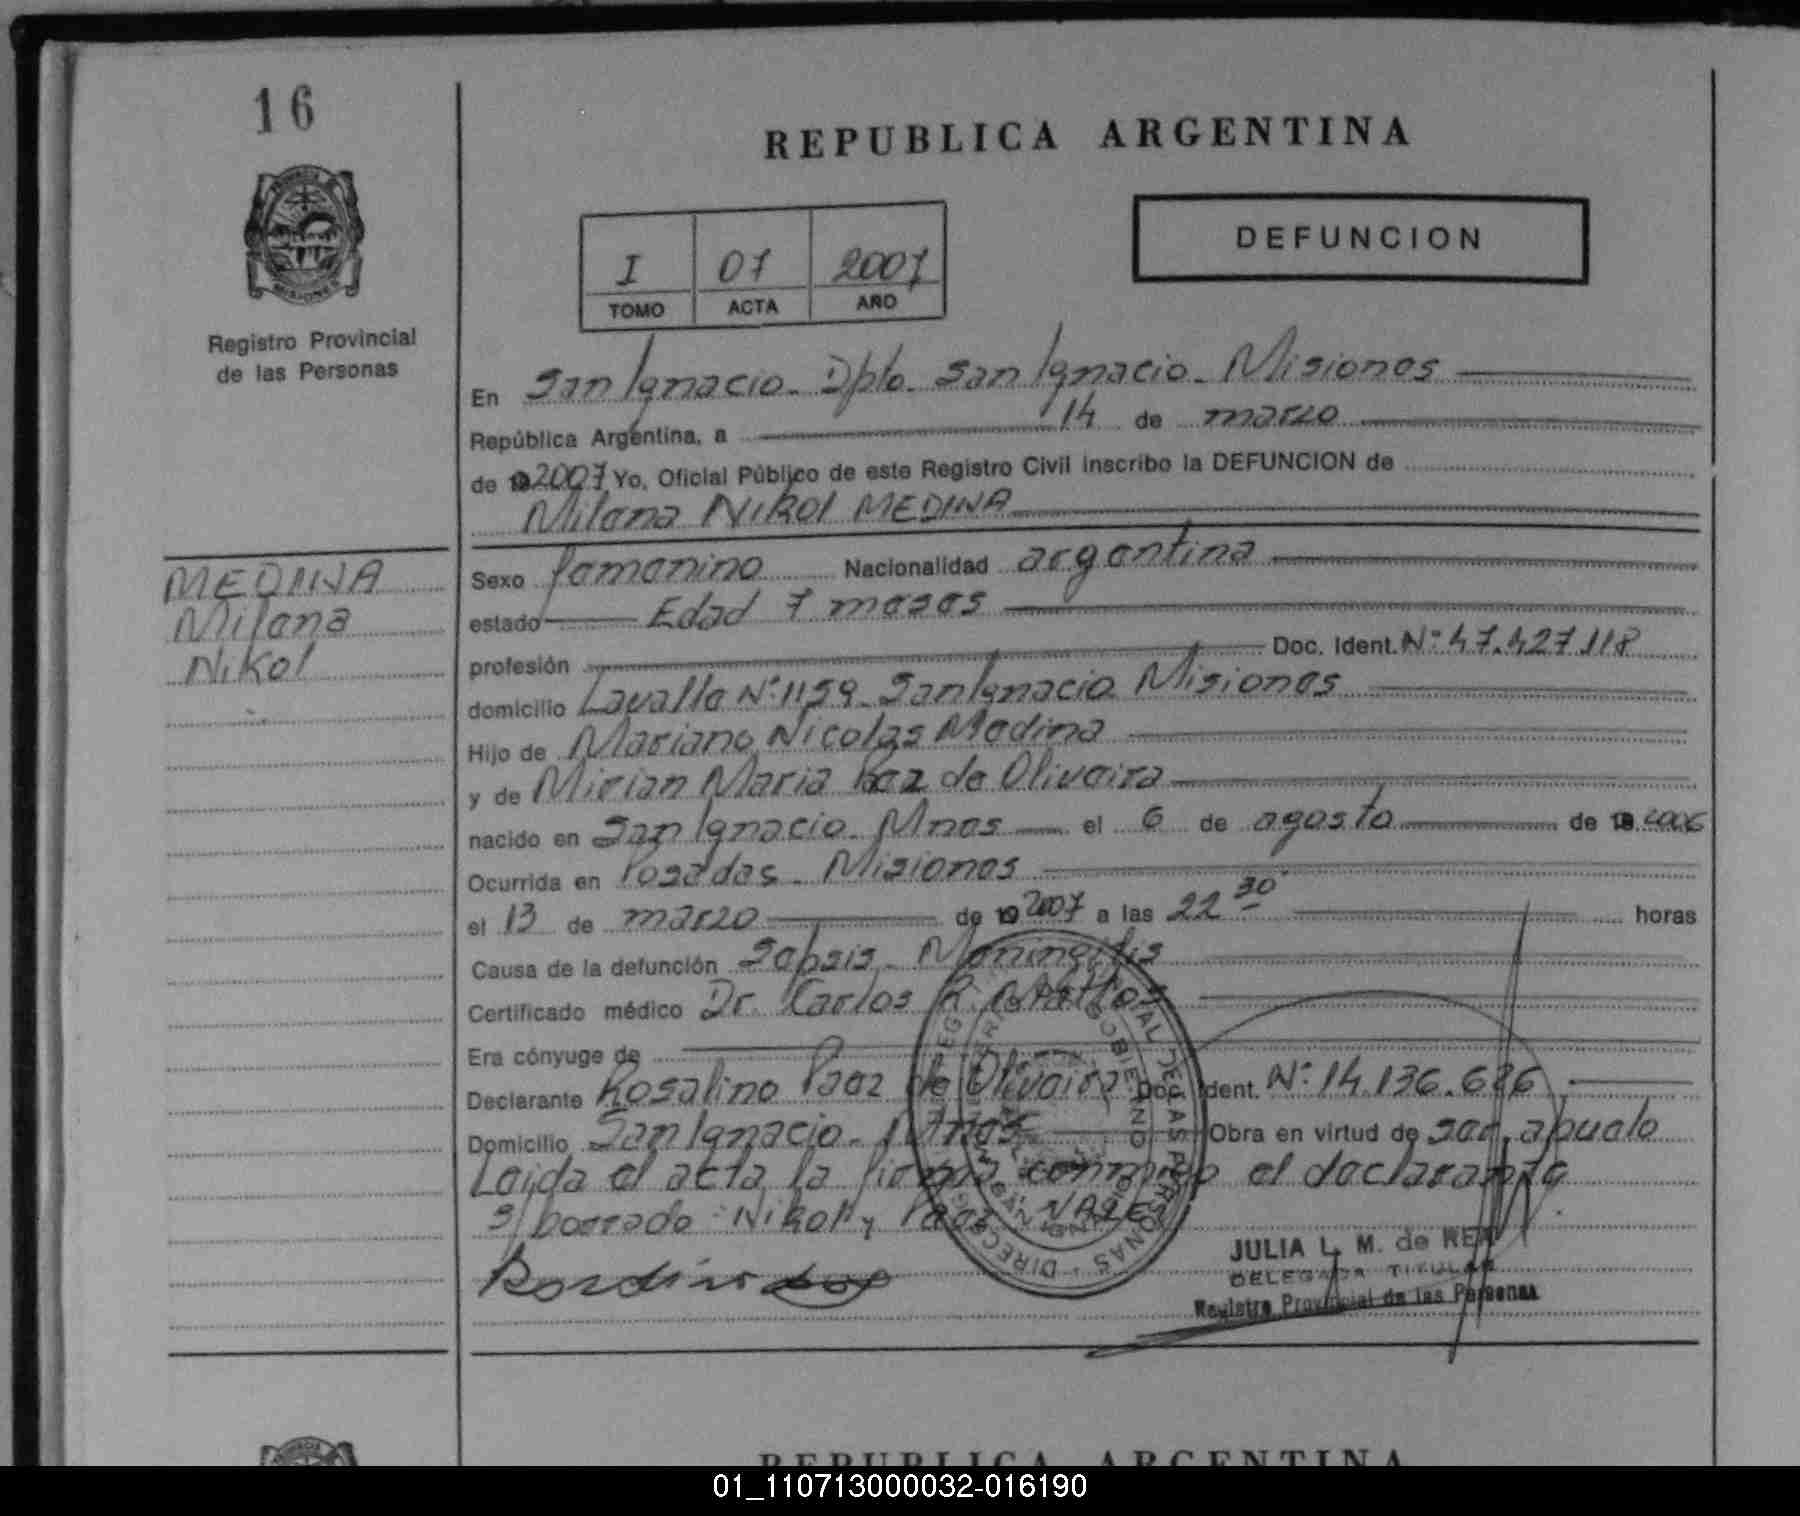 16
REPUBLICA ARGENTINA
DEFUNCION
I 07 2007
TOMO ACTA AÑO
Registro Provincial
de las Personas
En San Ignacio - Dpto. San Ignacio - Misiones
República Argentina, a 14 de marzo
de 19 2007 Yo, Oficial Público de este Registro Civil inscribo la DEFUNCION de
Milena Nikol MEDINA
MEDINA
Milena
Nikol
Sexo femenino Nacionalidad argentina
estado Edad 7 meses
profesión Doc. Ident. Nº 47.427.118
domicilio Lavalle Nº 1159 - San Ignacio Misiones
Hijo de Mariano Nicolas Medina
y de Mirian Maria Paez de Oliveira
nacido en San Ignacio - Mnes el 6 de agosto de 19 2006
Ocurrida en Posadas - Misiones
el 13 de marzo de 19 2007 a las 22 30 horas
Causa de la defunción Sepsis - Meningitis
Certificado médico Dr. Carlos R.
Era cónyuge de
Declarante Rosalino Paez de Oliveira Doc. Ident. Nº 14.136.686
Domicilio San Ignacio - Mnes Obra en virtud de ser abuelo
Leída el acta la firma conmigo el declarante
s/borrado "Nikol" y Paez VALE
JULIA L. M. de REA
DELEGADA TITULAR
Registro Provincial de las Personas
REPUBLICA ARGENTINA
01_110713000032-016190